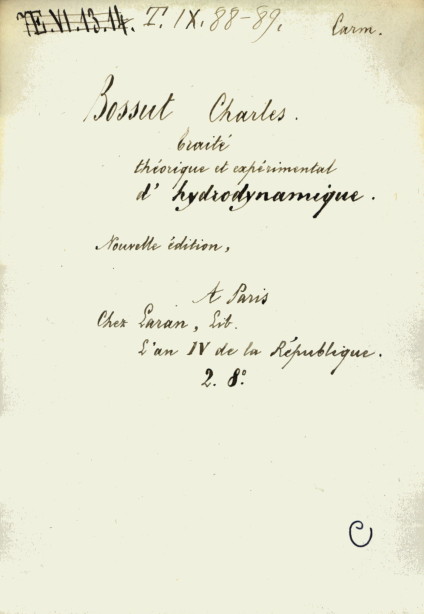 E.VI.13.14. T. IX. 88-89. Carm.
Bossut Charles.
traité
théorique et expérimental
d' hydrodynamique.
Nouvelle édition,
A Paris
Chez Laran, Lib.
L'an IV de la République.
2. 8°.
C